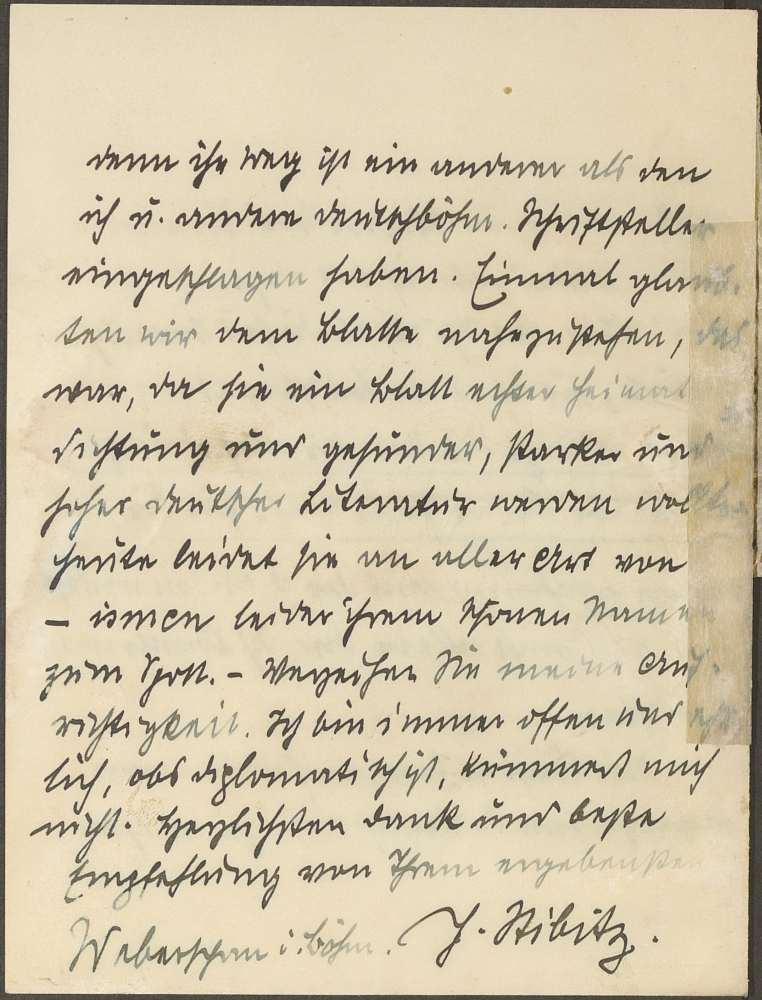 denn ihr Weg ist ein anderer als den
ich u. andere deutschböhm. Schriftsteller
eingeschlagen haben. Einmal glaub-
ten wir dem Blatte nahezustehen, das
war, da sie ein Blatt echter Heimat
dichtung und gesunder, starker und
hoher deutscher Literatur werden wollte
heute leidet sie an aller Art von
– ismen leider ihrem schönen Namen
zum Spott. – Verzeihen Sie meine Auf-
richtigkeit. Ich bin immer offen und ehr
lich, obs diplomatisch ist, kümmert mich
nicht. Herzlichsten Dank und beste
Empfehlung von Ihrem ergebensten
Weberschan i. Böhm. J. Stibitz.